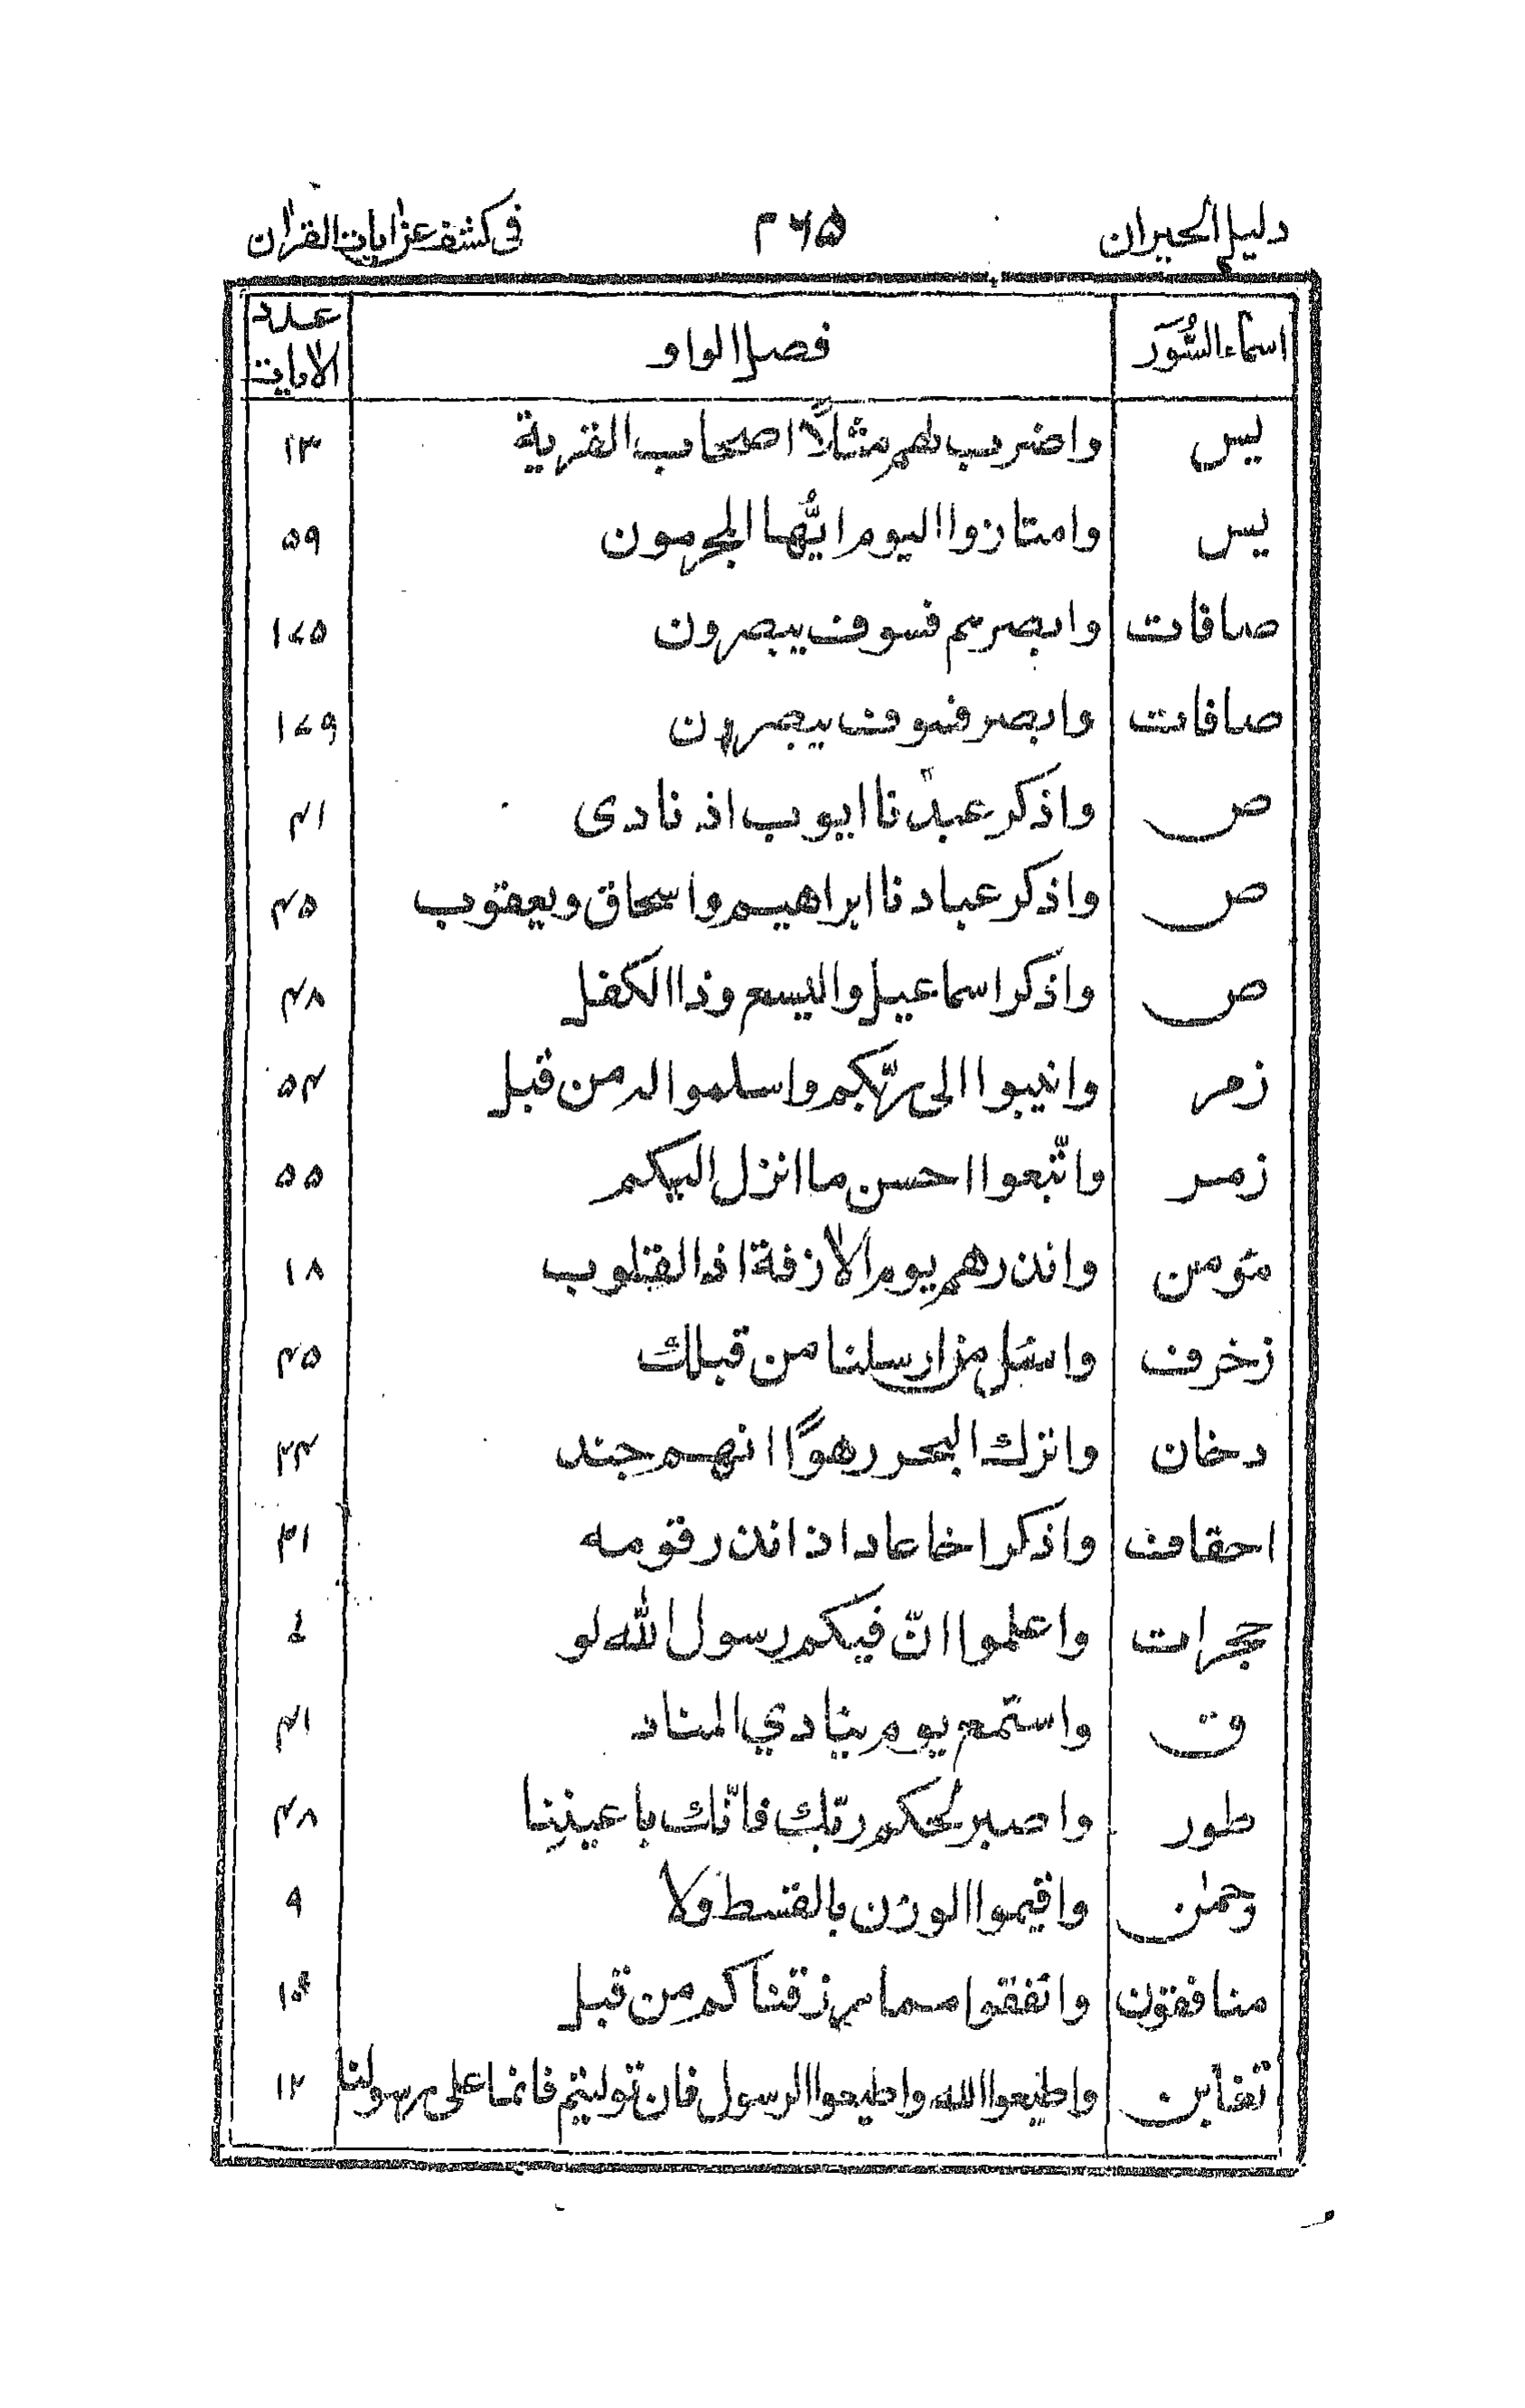 دليل الحيران ٢٦٥ فى كشف عن ايات القران
اسماء السُّوَر فصل الواو عدد الايات
يس واضرب لهم مثلاً اصحاب القرية ١٣
يس وامتازوا اليوم ايُّها المجرمون ٥٩
صافات وابصرهم فسوف يبصرون ١٧٥
صافات وابصر فسوف يبصرون ١٧٩
ص واذكر عبدنا ايوب اذ نادى ٤١
ص واذكر عبادنا ابراهيم واسحاق ويعقوب ٤٥
ص واذكر اسماعيل واليسع وذا الكفل ٤٨
زمر وانيبوا الى ربّكم واسلموا له من قبل ٥٤
زمر واتّبعوا احسن ما انزل اليكم ٥٥
مؤمن وانذرهم يوم الازفة اذ القلوب ١٨
زخرف واسئل من ارسلنا من قبلك ٤٥
دخان واترك البحر رهوًا انهم جند ٢٤
احقاف واذكر اخا عاد اذ انذر قومه ٢١
حجرات واعلموا انّ فيكم رسول الله لو ٧
ق واستمع يوم ينادي المناد ٤١
طور واصبر لحكم ربّك فانّك باعيننا ٤٨
رحمٰن واقيموا الوزن بالقسط ولا ٩
منافقون وانفقوا مما رزقناكم من قبل ١٠
تغابن واطيعوا الله واطيعوا الرسول فان توليتم فانما على رسولنا ١٢